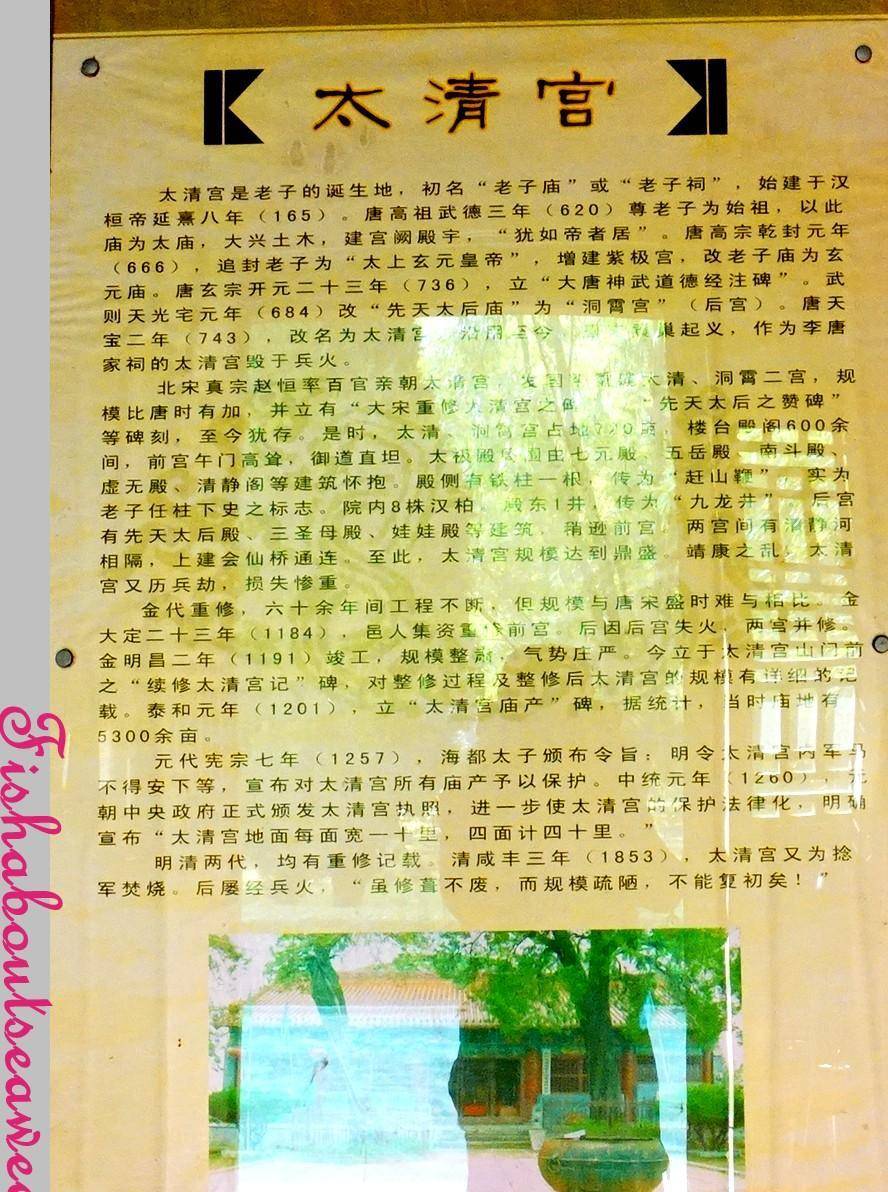 太清宫
太清宫是老子的诞生地，初名“老子庙”或“老子祠”，始建于汉
桓帝延熹八年（165）。唐高祖武德三年（620）尊老子为始祖，以此
庙为太庙，大兴土木，建宫阙殿宇，“犹如帝者居”。唐高宗乾封元年
（666），追封老子为“太上玄元皇帝”，增建紫极宫，改老子庙为玄
元庙。唐玄宗开元二十三年（736），立“大唐神武道德经注碑”。武
则天光宅元年（684）改“先天太后庙”为“洞霄宫”（后宫）。唐天
宝二年（743），改名为太清宫，沿用至今。巢起义，作为李唐
家祠的太清宫毁于兵火。
北宋真宗赵恒率百官亲朝太清宫，太清、洞霄二宫，规
模比唐时有加，并立有“大宋重修太清宫之碑”“先天太后之赞碑”
等碑刻，至今犹存。是时，太清、洞霄宫占地，楼台殿阁600余
间，前宫午门高耸，御道直坦。太极殿周围由七元殿、五岳殿、南斗殿、
虚无殿、清静阁等建筑怀抱。殿侧有铁柱一根，传为“赶山鞭”，实为
老子任柱下史之标志。院内8株汉柏。殿东1井，传为“九龙井”。后宫
有先天太后殿、三圣母殿、娃娃殿等建筑，稍逊前宫。两宫间有清静河
相隔，上建会仙桥通连。至此，太清宫规模达到鼎盛。靖康之乱，太清
宫又历兵劫，损失惨重。
金代重修，六十余年间工程不断，但规模与唐宋盛时难与相比。金
大定二十三年（1184），邑人集资重修前宫。后因后宫失火，两宫并修。
金明昌二年（1191）竣工，规模整肃，气势庄严。今立于太清宫山门前
之“续修太清宫记”碑，对整修过程及整修后太清宫的规模有详细的记
载。泰和元年（1201），立“太清宫庙产”碑，据统计，当时庙地有
5300余亩。
元代宪宗七年（1257），海都太子颁布令旨：明令太清宫内军马
不得安下等，宣布对太清宫所有庙产予以保护。中统元年（1260），元
朝中央政府正式颁发太清宫执照，进一步使太清宫的保护法律化，明确
宣布“太清宫地面每面宽一十里，四面计四十里。”
明清两代，均有重修记载。清咸丰三年（1853），太清宫又为捻
军焚烧。后屡经兵火，“虽修葺不废，而规模疏陋，不能复初矣！”
Fishaboutseawee